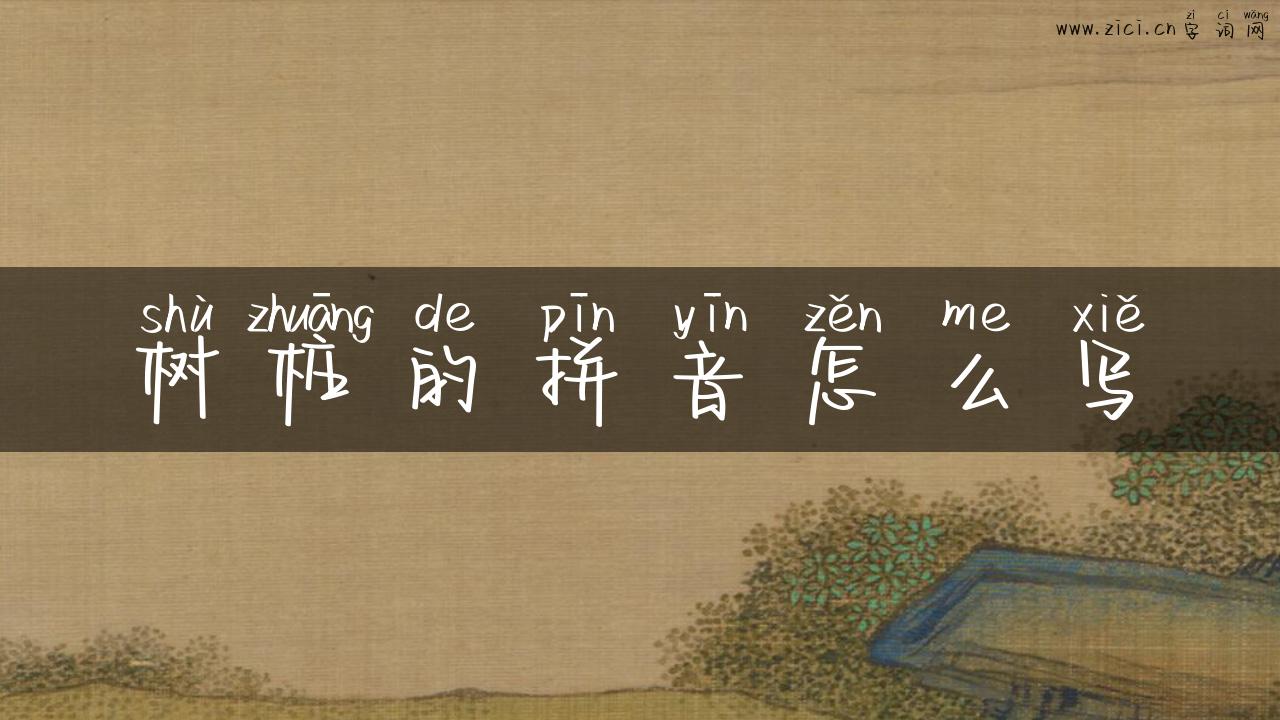 zì cí wǎng
www.zici.cn 字 词 网
shù zhuāng de pīn yīn zěn me xiě
树 桩 的 拼 音 怎 么 写